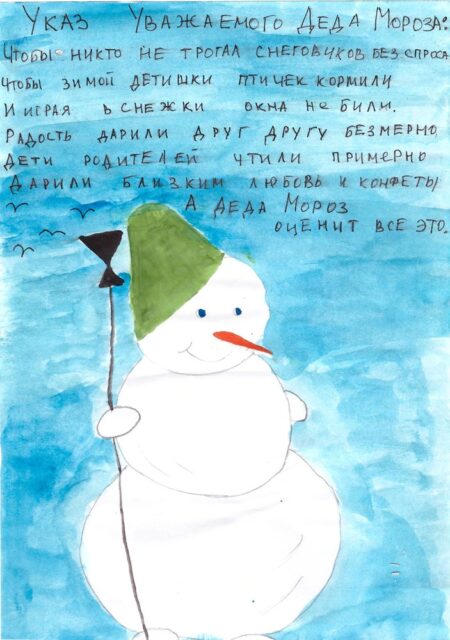 Указ Уважаемого Деда Мороза:
Чтобы никто не трогал снеговиков без спроса
Чтобы зимой детишки птичек кормили
И играя в снежки окна не били.
Радость дарили друг другу безмерно,
Дети родителей чтили примерно
Дарили близким любовь и конфеты
А Деда Мороз
оценит все это.